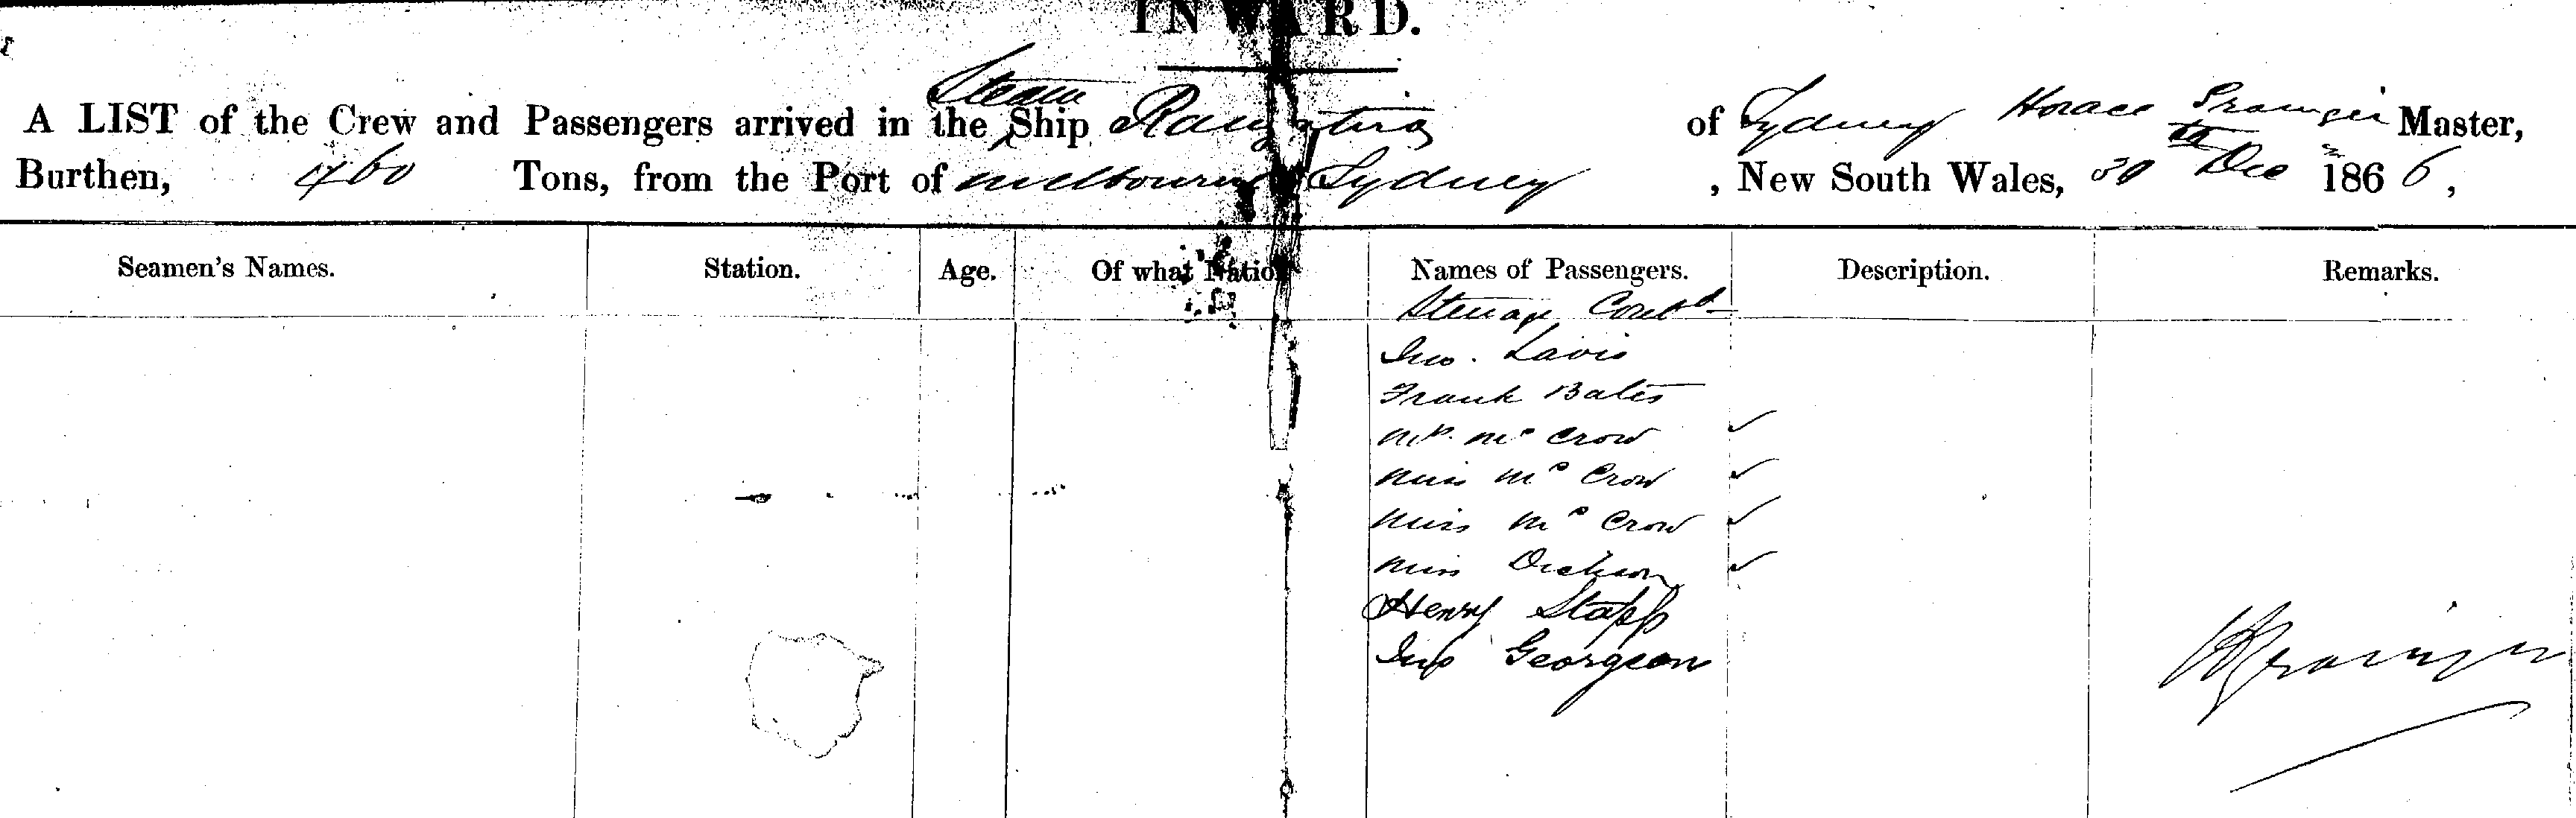 INWARD.
A LIST of the Crew and Passengers arrived in the Steam Ship Rangatira of Sydney Horace Grainger Master,
Burthen, 460 Tons, from the Port of Melbourne Sydney , New South Wales, 30 Dec 1866,
Seamen's Names. Station. Age. Of what Nation Names of Passengers. Description. Remarks.
Steerage Contd
Jno. Lavis
Frank Bates
Mr. Mc Crow
Miss Mc Crow
Miss Mc Crow
Miss Dickson
Henry Stapp
Jno Georgeson
H Grainger